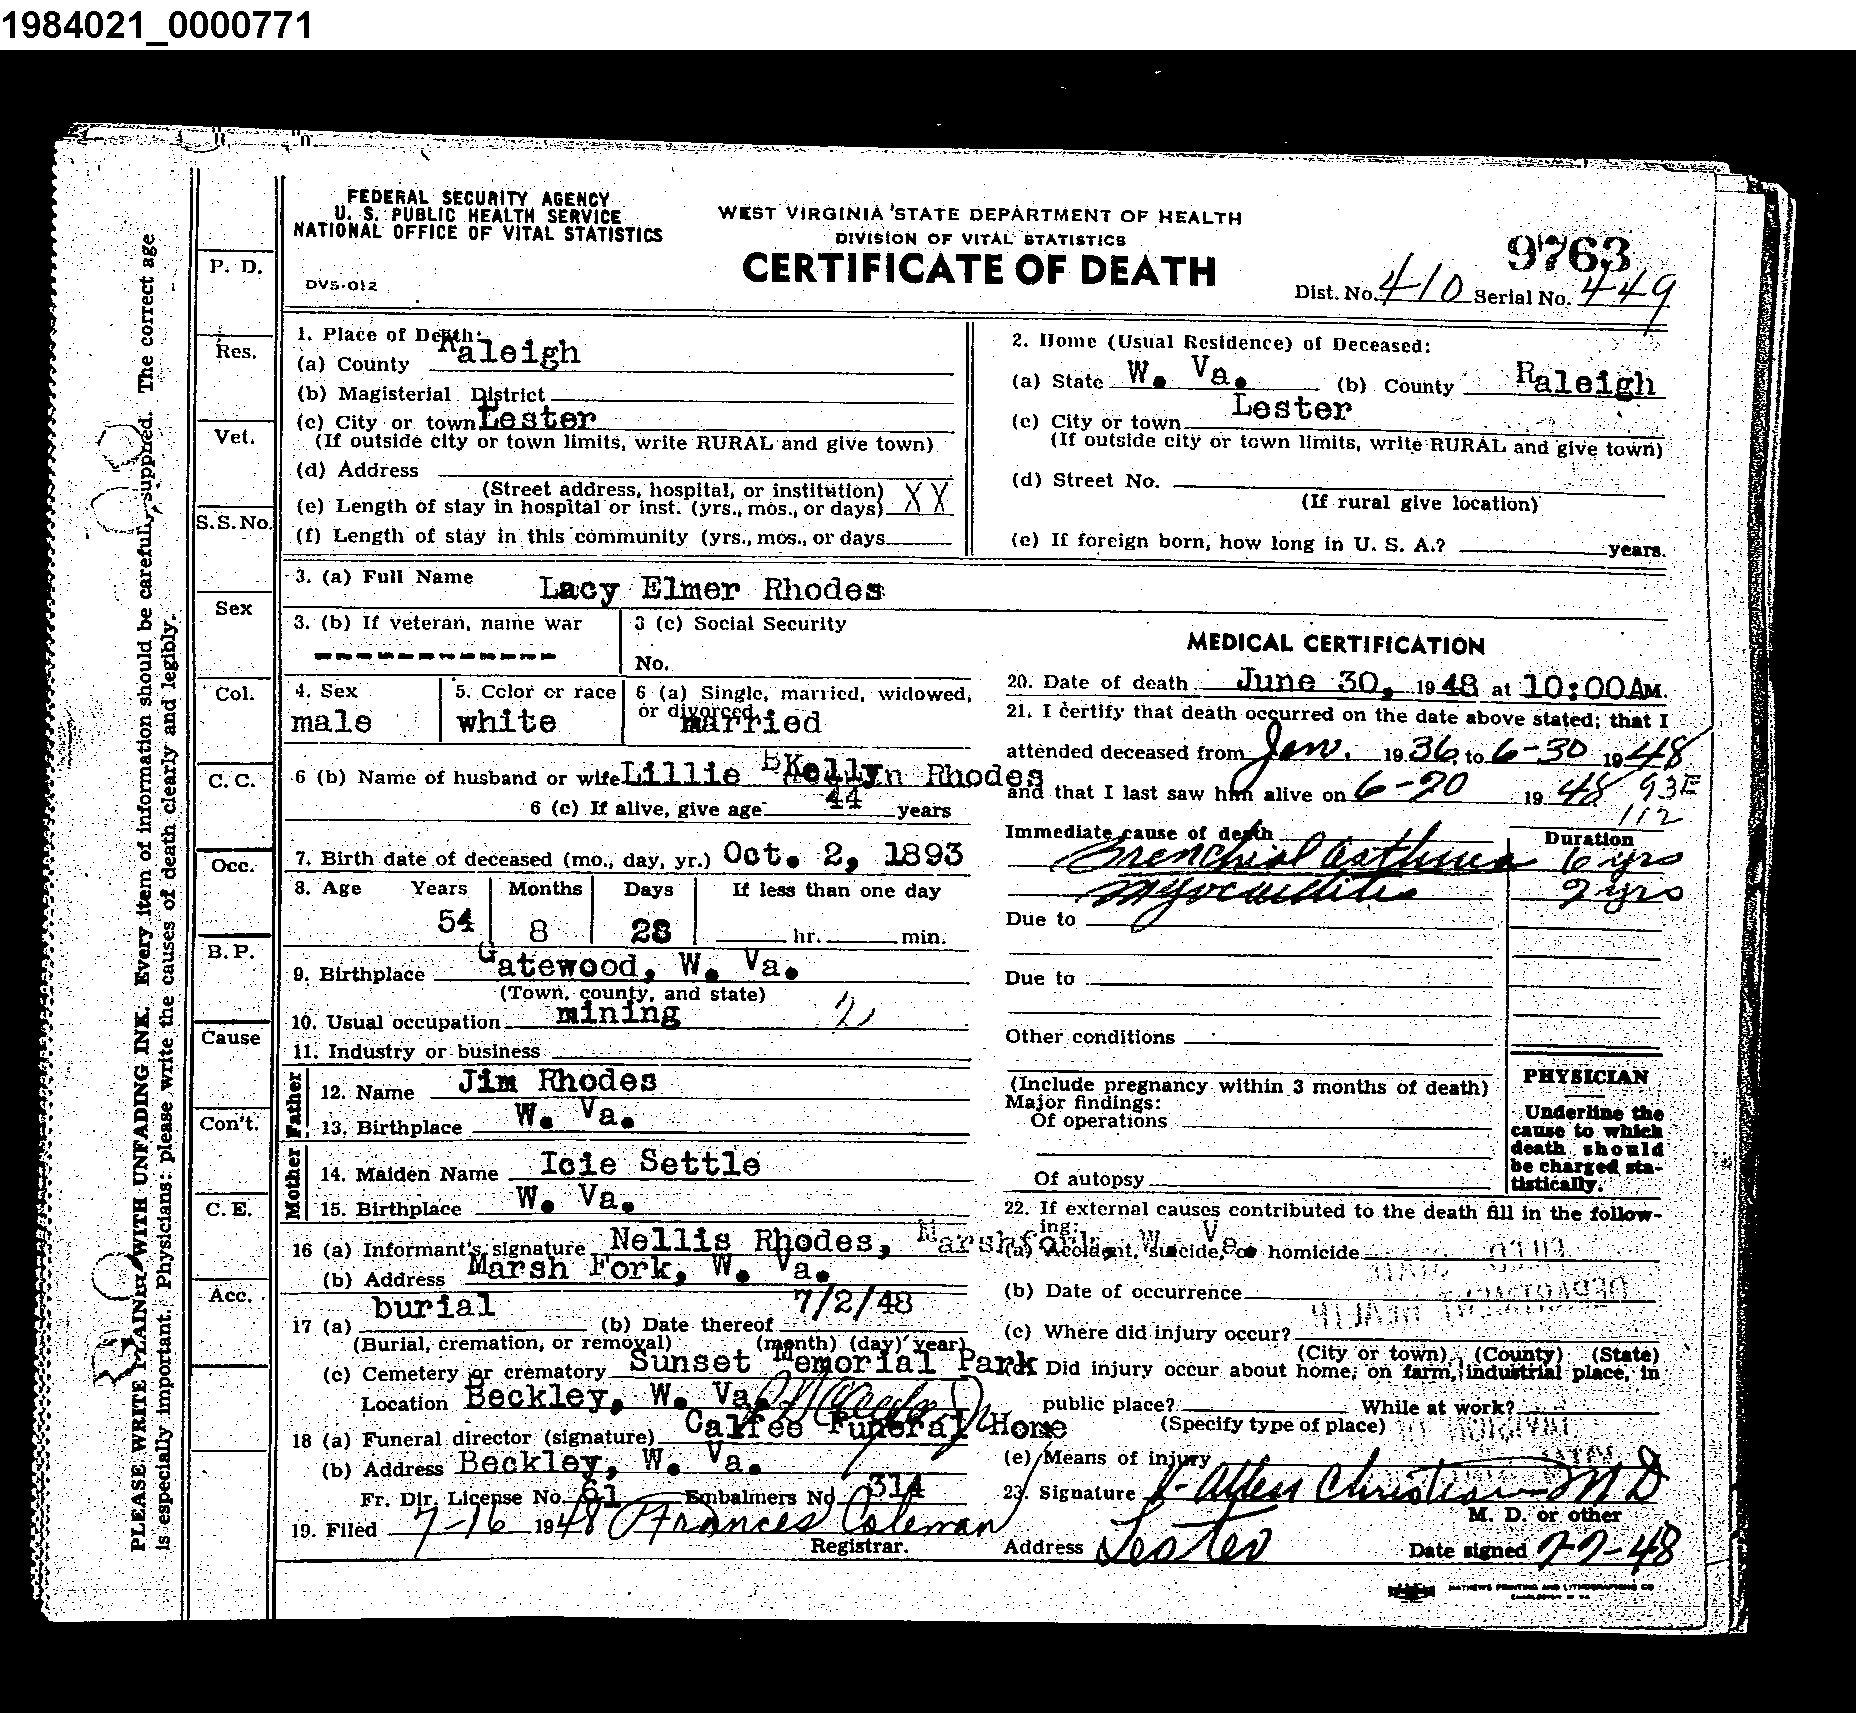 1984021_0000771
FEDERAL SECURITY AGENCY
U. S. PUBLIC HEALTH SERVICE
NATIONAL OFFICE OF VITAL STATISTICS
DVS-012
WEST VIRGINIA STATE DEPARTMENT OF HEALTH
DIVISION OF VITAL STATISTICS
CERTIFICATE OF DEATH
9763
Dist. No. 410 Serial No. 449
PLEASE WRITE PLAINLY WITH UNFADING INK. Every item of information should be carefully supplied. The correct age
is especially important. Physicians: please write the causes of death clearly and legibly.
P. D.
Res.
Vet.
S.S. No.
Sex
Col.
C. C.
Occ.
B. P.
Cause
Con't.
C. E.
Acc.
1. Place of Death:
(a) County Raleigh
(b) Magisterial District
(c) City or town Lester
(If outside city or town limits, write RURAL and give town)
(d) Address
(Street address, hospital, or institution)
(e) Length of stay in hospital or inst. (yrs., mos., or days) XX
(f) Length of stay in this community (yrs., mos., or days
2. Home (Usual Residence) of Deceased:
(a) State W. Va. (b) County Raleigh
(c) City or town Lester
(If outside city or town limits, write RURAL and give town)
(d) Street No.
(If rural give location)
(e) If foreign born, how long in U. S. A.? years.
3. (a) Full Name Lacy Elmer Rhodes
3. (b) If veteran, name war
3 (c) Social Security
No.
4. Sex male
5. Color or race white
6 (a) Single, married, widowed, or divorced married
6 (b) Name of husband or wife Lillie Rhodes
6 (c) If alive, give age 44 years
7. Birth date of deceased (mo., day, yr.) Oct. 2, 1893
8. Age Years Months Days If less than one day
54 8 28 hr. min.
9. Birthplace Gatewood, W. Va.
(Town, county, and state)
10. Usual occupation mining 2
11. Industry or business
Father
12. Name Jim Rhodes
13. Birthplace W. Va.
Mother
14. Maiden Name Icie Settle
15. Birthplace W. Va.
16 (a) Informant's signature Nellis Rhodes, Marshfork, W. Va.
(b) Address Marsh Fork, W. Va.
17 (a) burial (b) Date thereof 7/2/48
(Burial, cremation, or removal) (month) (day) year)
(c) Cemetery or crematory Sunset Memorial Park
Location Beckley, W. Va.
18 (a) Funeral director (signature) Calfee Funeral Home
(b) Address Beckley, W. Va.
Fr. Dir. License No. 61 Embalmers No 314
19. Filed 7-16 1948 Frances Coleman
Registrar.
MEDICAL CERTIFICATION
20. Date of death June 30, 1948 at 10:00 AM.
21. I certify that death occurred on the date above stated; that I
attended deceased from Jan. 1936 to 6-30 1948
and that I last saw him alive on 6-20 1948
93E
112
Immediate cause of death Duration
Bronchial Asthma 6 yrs
Myocarditis 2 yrs
Due to
Due to
Other conditions
(Include pregnancy within 3 months of death)
Major findings:
Of operations
Of autopsy
PHYSICIAN
Underline the
cause to which
death should
be charged sta-
tistically.
22. If external causes contributed to the death fill in the follow-
ing:
(a) Accident, suicide, or homicide
(b) Date of occurrence
(c) Where did injury occur?
(City or town) (County) (State)
Did injury occur about home, on farm, industrial place, in
public place? While at work?
(Specify type of place)
(e) Means of injury
23. Signature Allen Christian MD
M. D. or other
Address Lester Date signed 7-7-48
MATHEWS PRINTING AND LITHOGRAPHING CO
CHARLESTON W VA